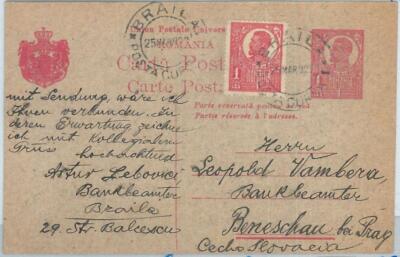 Union Postale Univers
ROMÂNIA
Cartă Post
Carte Post
Parte rezervată pentru
Partie réservée à l'adresse.
BRAILA
25 MAR 92
BRAILA
MAR 92
1
1
mit Sendung, wäre ich
Ihnen verbunden. In
deren Erwartung zeichne
ich mit Kollegialem
Gruss
hochachtend
Artur Lebovici
Bankbeamter
Braila
29. Str. Balcescu
Herrn
Leopold Vambera,
Bankbeamter
Beneschau bei Prag
Cecho Slovacia